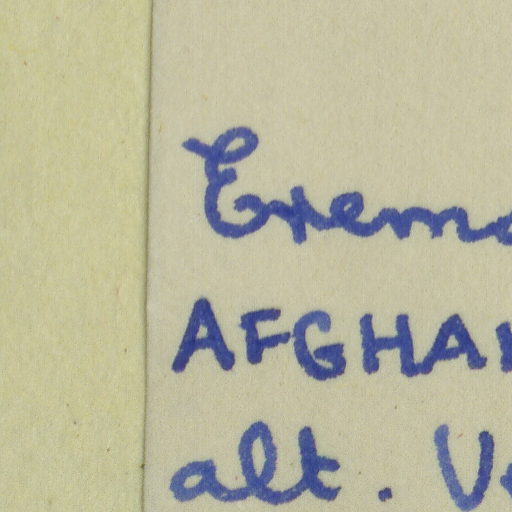 Erem
AFGHAN
alt. V